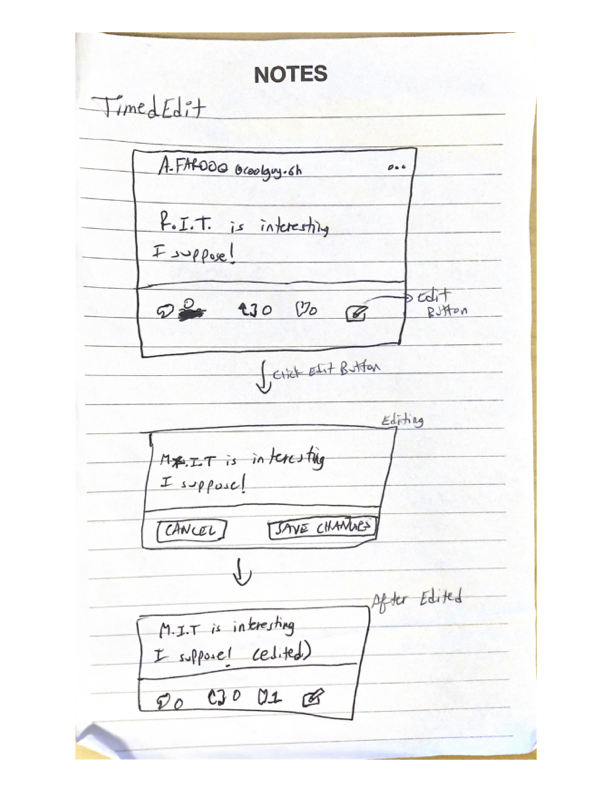 NOTES
TimedEdit
A.FAROOQ @coolguy.6h ...
R.I.T. is interesting
I suppose!
0 0 0
Edit
Button
Click Edit Button
Editing
M.I.T is interesting
I suppose!
CANCEL SAVE CHANGES
After Edited
M.I.T is interesting
I suppose! (edited)
0 0 1